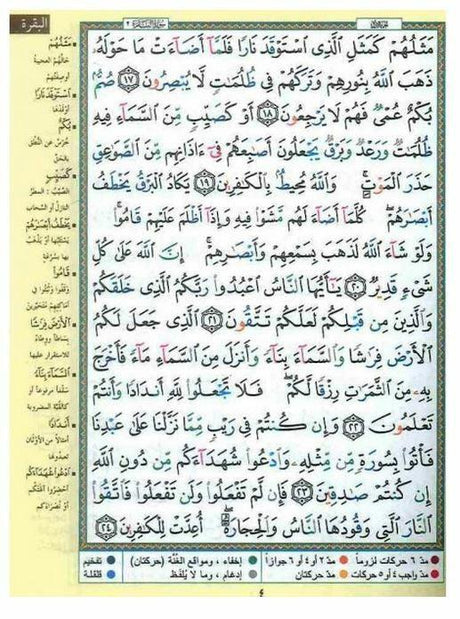 البقرة
مَثَلُهُمْ كَمَثَلِ ٱلَّذِى ٱسْتَوْقَدَ نَارًا فَلَمَّآ أَضَآءَتْ مَا حَوْلَهُۥ
ذَهَبَ ٱللَّهُ بِنُورِهِمْ وَتَرَكَهُمْ فِى ظُلُمَـٰتٍ لَّا يُبْصِرُونَ ١٧ صُمٌّۢ
بُكْمٌ عُمْىٌ فَهُمْ لَا يَرْجِعُونَ ١٨ أَوْ كَصَيِّبٍ مِّنَ ٱلسَّمَآءِ فِيهِ
ظُلُمَـٰتٌ وَرَعْدٌ وَبَرْقٌ يَجْعَلُونَ أَصَـٰبِعَهُمْ فِىٓ ءَاذَانِهِم مِّنَ ٱلصَّوَٰعِقِ
حَذَرَ ٱلْمَوْتِ ۚ وَٱللَّهُ مُحِيطٌۢ بِٱلْكَـٰفِرِينَ ١٩ يَكَادُ ٱلْبَرْقُ يَخْطَفُ
أَبْصَـٰرَهُمْ ۖ كُلَّمَآ أَضَآءَ لَهُم مَّشَوْا۟ فِيهِ وَإِذَآ أَظْلَمَ عَلَيْهِمْ قَامُوا۟ ۚ
وَلَوْ شَآءَ ٱللَّهُ لَذَهَبَ بِسَمْعِهِمْ وَأَبْصَـٰرِهِمْ ۚ إِنَّ ٱللَّهَ عَلَىٰ كُلِّ
شَىْءٍ قَدِيرٌ ٢٠ يَـٰٓأَيُّهَا ٱلنَّاسُ ٱعْبُدُوا۟ رَبَّكُمُ ٱلَّذِى خَلَقَكُمْ
وَٱلَّذِينَ مِن قَبْلِكُمْ لَعَلَّكُمْ تَتَّقُونَ ٢١ ٱلَّذِى جَعَلَ لَكُمُ
ٱلْأَرْضَ فِرَٰشًا وَٱلسَّمَآءَ بِنَآءً وَأَنزَلَ مِنَ ٱلسَّمَآءِ مَآءً فَأَخْرَجَ
بِهِۦ مِنَ ٱلثَّمَرَٰتِ رِزْقًا لَّكُمْ ۖ فَلَا تَجْعَلُوا۟ لِلَّهِ أَندَادًا وَأَنتُمْ
تَعْلَمُونَ ٢٢ وَإِن كُنتُمْ فِى رَيْبٍ مِّمَّا نَزَّلْنَا عَلَىٰ عَبْدِنَا
فَأْتُوا۟ بِسُورَةٍ مِّن مِّثْلِهِۦ وَٱدْعُوا۟ شُهَدَآءَكُم مِّن دُونِ ٱللَّهِ
إِن كُنتُمْ صَـٰدِقِينَ ٢٣ فَإِن لَّمْ تَفْعَلُوا۟ وَلَن تَفْعَلُوا۟ فَٱتَّقُوا۟
ٱلنَّارَ ٱلَّتِى وَقُودُهَا ٱلنَّاسُ وَٱلْحِجَارَةُ ۖ أُعِدَّتْ لِلْكَـٰفِرِينَ ٢٤
مَثَلُهُمْ
حالُهُمُ العجيبةُ
ٱسْتَوْقَدَ نَارًا
أوقَدَهَا
بُكْمٌ
خُرْسٌ عن النُّطْقِ
بالحَقِّ
كَصَيِّبٍ
يَخْطَفُ أَبْصَـٰرَهُمْ
قَامُوا۟
ٱلْأَرْضَ فِرَٰشًا
للاستقرارِ عليها
ٱلسَّمَآءَ بِنَآءً
أَندَادًا
أمثالاً من الأوثانِ
تعبدونها
ٱدْعُوا۟ شُهَدَآءَكُم
أحضِرُوا آلهتَكُم
أو نُصَرَاءَكُم
مدّ ٦ حركات لزوماً مدّ ٢ أو ٤ أو ٦ جوازاً إخفاء، ومواقع الغُنَّة (حركتان) تفخيم
مدّ واجب ٤ أو ٥ حركات مدّ حركتان إدغام، وما لا يُلفَظ قلقلة
٤